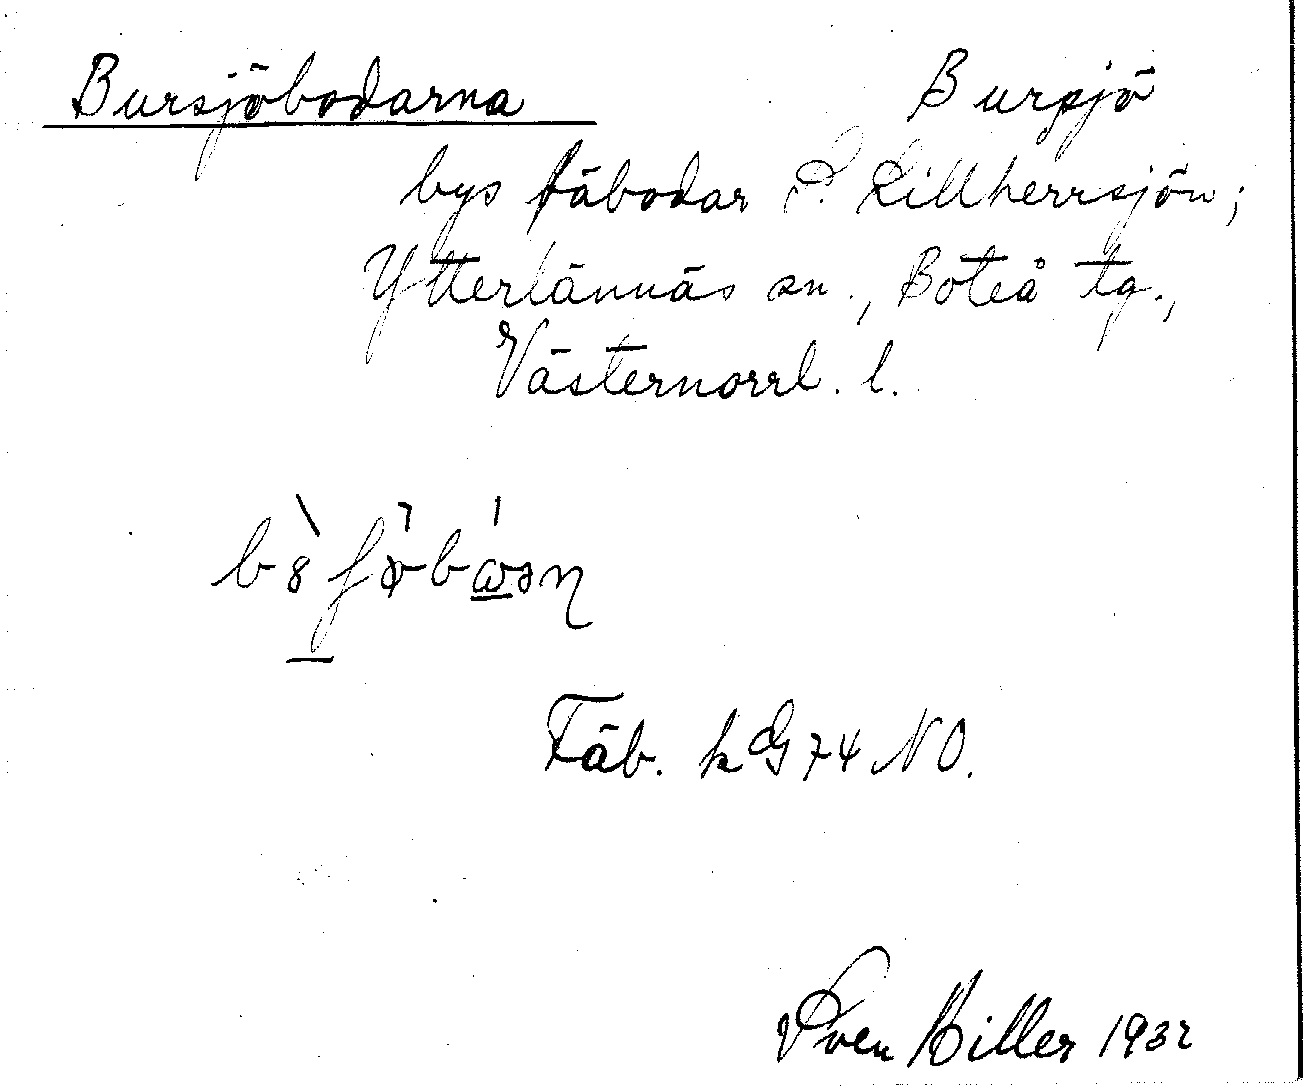 Bursjöbodarna Bursjö
bys fäbodar S. Lillherrsjön;
Ytterlännäs sn., Boteå tg.,
Västernorrl. l.
Fäb. k G 74 NO.
Sven Hiller 1932